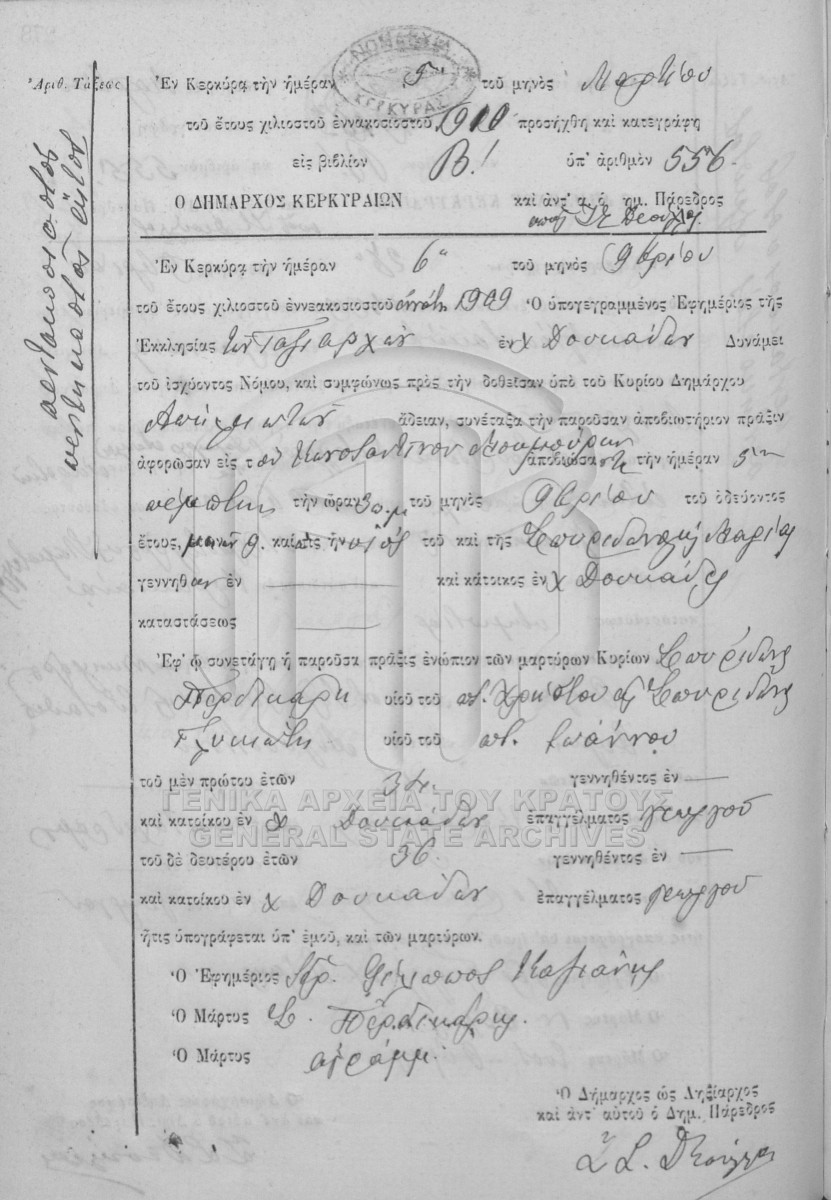 Ἀριθ. Τάξεως
πεντακοσιοστὸς
πεντηκοστὸς ἕκτος
ΝΟΜΑΡΧΙΑ
ΚΕΡΚΥΡΑΣ
Ἐν Κερκύρᾳ τὴν ἡμέραν 5ην τοῦ μηνὸς Μαρτίου
τοῦ ἔτους χιλιοστοῦ ἐννακοσιοστοῦ 1910 προσήχθη καὶ κατεγράφη
εἰς βιβλίον Β! ὑπ' ἀριθμὸν 556
Ο ΔΗΜΑΡΧΟΣ ΚΕΡΚΥΡΑΙΩΝ καὶ ἀντ' α. ὁ δημ. Πάρεδρος
Ἐν Κερκύρᾳ τὴν ἡμέραν 6η τοῦ μηνὸς 9βρίου
τοῦ ἔτους χιλιοστοῦ ἐννεακοσιοστοῦ ἐννάτου 1909 Ὁ ὑπογεγραμμένος Ἐφημέριος τῆς
Ἐκκλησίας τῶν Ταξιαρχῶν ἐν χ Δουκάδων Δυνάμει
τοῦ ἰσχύοντος Νόμου, καὶ συμφώνως πρὸς τὴν δοθεῖσαν ὑπὸ τοῦ Κυρίου Δημάρχου
ἄδειαν, συνέταξα τὴν παροῦσαν ἀποβιωτήριον πρᾶξιν
ἀφορῶσαν εἰς τὸν Κωνσταντῖνον ἀποβιώσα τὴν ἡμέραν 5ην
πέμπτην τὴν ὥραν 3 π.μ τοῦ μηνὸς 9βρίου τοῦ ὁδεύοντος
ἔτους, μηνῶν 9. καὶ τις ἦν υἱὸς τοῦ καὶ τῆς Σπυρίδωνος Μαρίας
γεννηθ ἐν — καὶ κάτοικος ἐν χ Δουκάδες
καταστάσεως —
Ἐφ' ᾧ συνετάγη ἡ παροῦσα πρᾶξις ἐνώπιον τῶν μαρτύρων Κυρίων Σπυρίδων
Περδικάρη υἱοῦ τοῦ π. Χρήστου Σπυρίδων
Γλυκιώτη υἱοῦ τοῦ π. Ἰωάννου
τοῦ μὲν πρώτου ἐτῶν 34. γεννηθέντος ἐν —
καὶ κατοίκου ἐν χ Δουκάδων ἐπαγγέλματος γεωργοῦ
τοῦ δὲ δευτέρου ἐτῶν 36. γεννηθέντος ἐν —
καὶ κατοίκου ἐν χ Δουκάδων ἐπαγγέλματος γεωργοῦ
ἥτις ὑπογράφεται ὑπ' ἐμοῦ, καὶ τῶν μαρτύρων.
Ὁ Ἐφημέριος Ἱερ. Φίλιππος
Ὁ Μάρτυς Σ. Περδικάρης
Ὁ Μάρτυς ἀγράμμ.
Ὁ Δήμαρχος ὡς Ληξίαρχος
καὶ ἀντ' αὐτοῦ ὁ Δημ. Πάρεδρος
ΓΕΝΙΚΑ ΑΡΧΕΙΑ ΤΟΥ ΚΡΑΤΟΥΣ
GENERAL STATE ARCHIVES